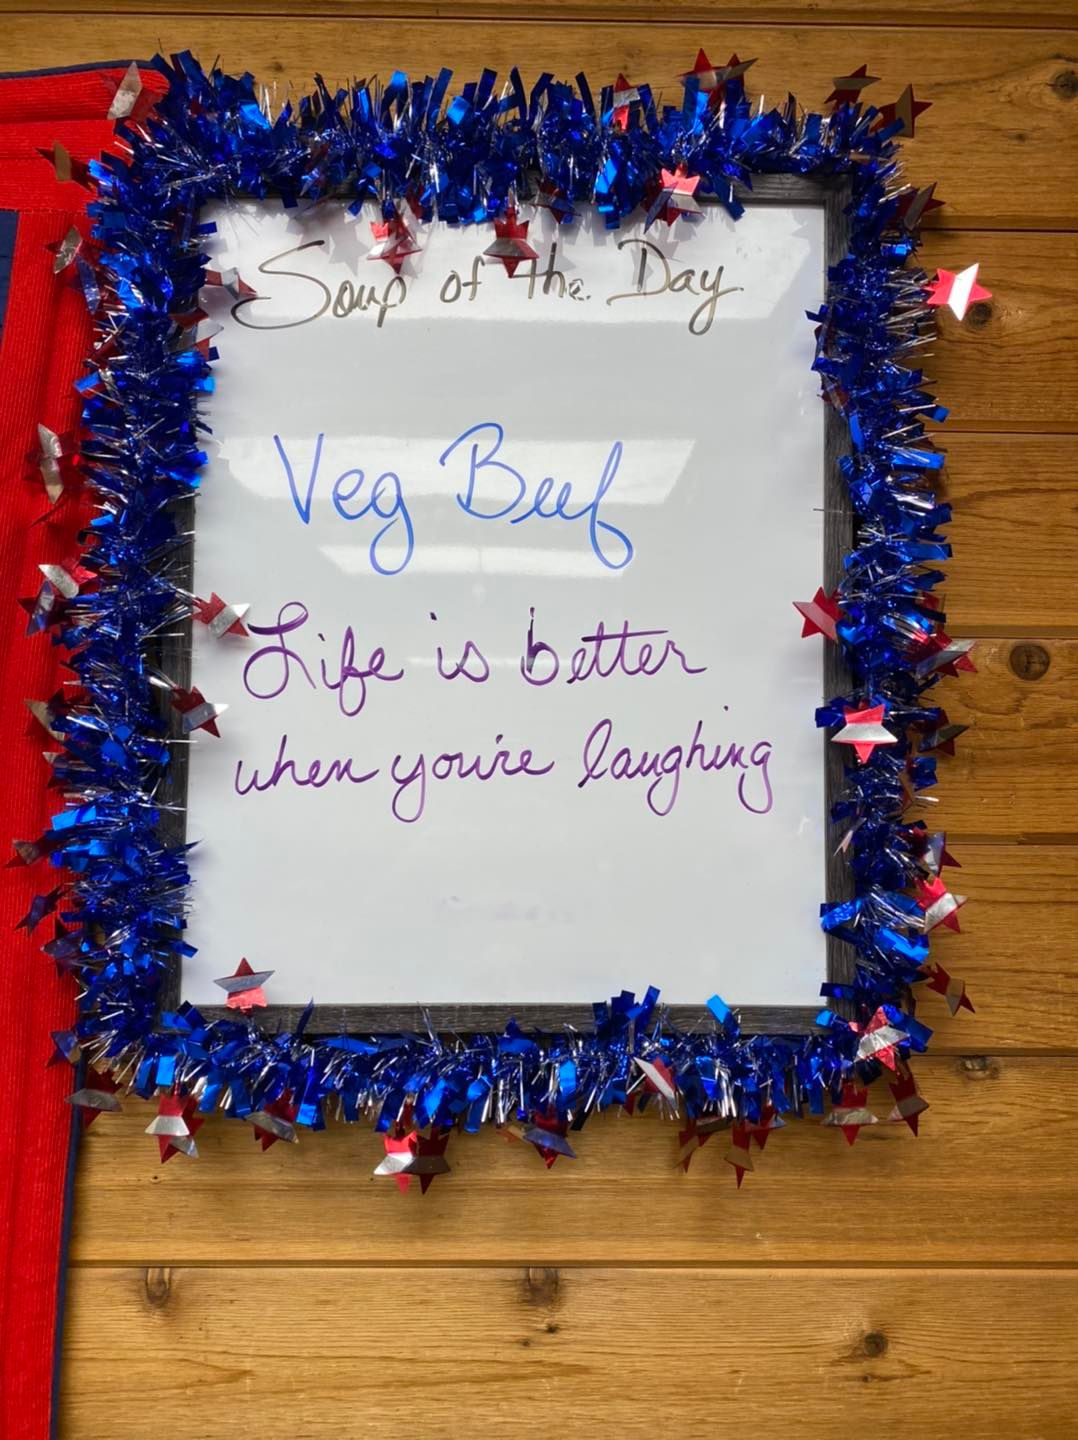 Soup of the Day
Veg Beef
Life is better
when you're laughing